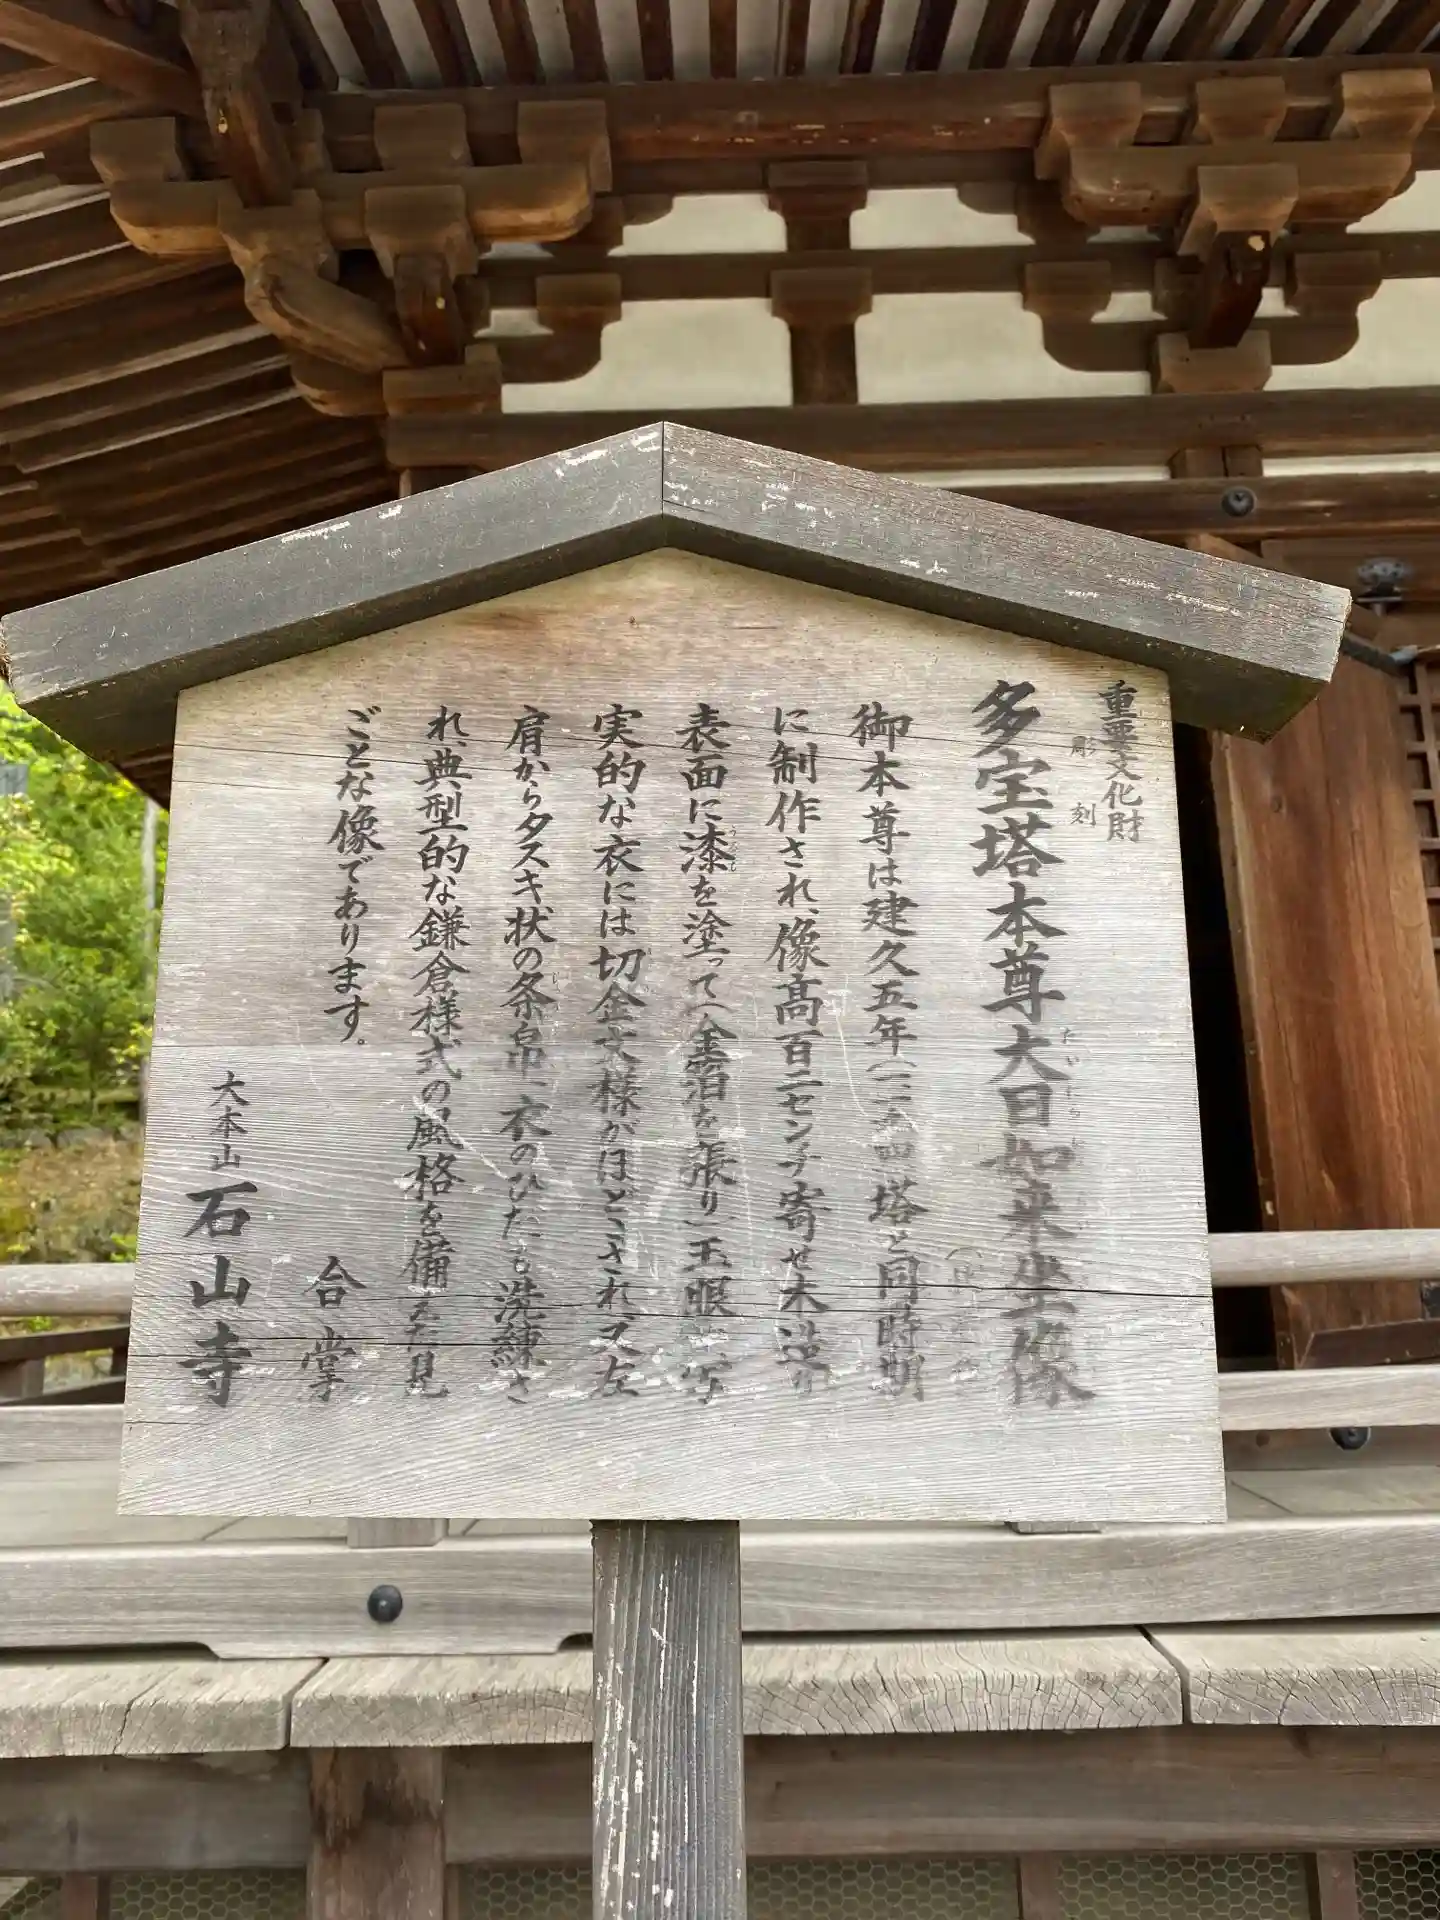 重要文化財
彫刻
多宝塔本尊大日如来坐像
御本尊は建久五年(一一九四塔と同時期
に制作され、像高百二センチ寄せ木造り
表面に漆を塗って(金箔を張り)玉眼、写
実的な衣には切金文様がほどこされ又左
肩からタスキ状の条帛、衣のひだも洗練さ
れ、典型的な鎌倉様式の風格を備えた見
ごとな像であります。
合掌
大本山 石山寺